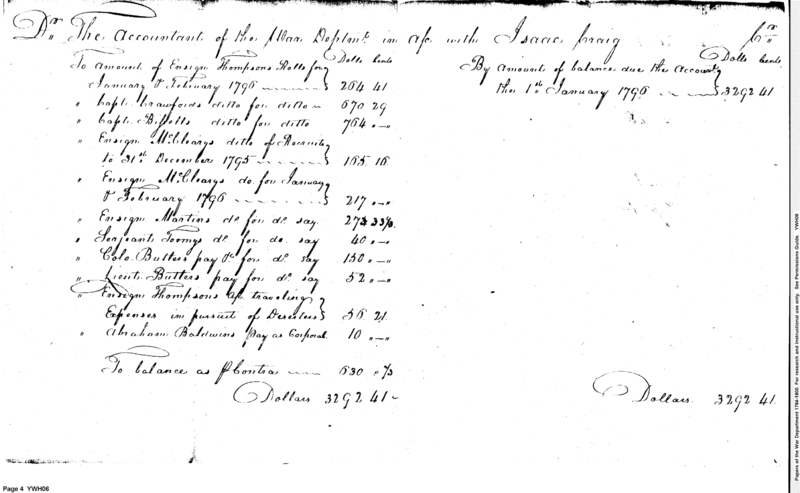 Dr. The Accountant of the War Departmt. in a/c with Isaac Craig Cr.
Dolls Cents
To Amount of Ensign Thompsons Rolls for
January & February 1796 264 41
" Capt. Crawfords ditto for ditto 670 29
" Capt. Bissells ditto for ditto 764 " —
" Ensign McClearys ditto of Recruits
to 31st. December 1795 165 16
" Ensign McClearys do. for January
& February 1796 217 " —
" Ensign Martins do. for do. say 273 33⅓
" Serjeant Toomys do. for do. say 40 " —
" Colo. Butlers pay &c for do. say 150 " —
" Lieut. Butlers pay for do. say 52 " —
" Ensign Thompsons a/c traveling
Expenses in pursuit of Deserters 56 21
" Abraham Baldwins Pay as Corporal 10 " —
To balance as p Contra 630 " ⅔
Dollars 3292 41
Dolls Cents
By Amount of balance due the Accountt.
the 1st. January 1796 3292 41
Dollars 3292 41
Page 4 YWH06
Papers of the War Department 1784-1800. For research and instructional use only. See Permissions Guide. YWH06